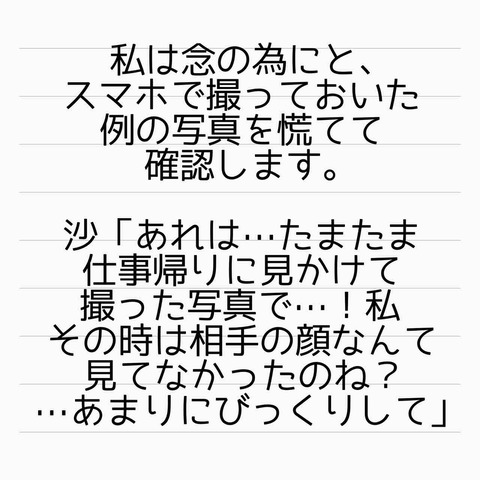 私は念の為にと、
スマホで撮っておいた
例の写真を慌てて
確認します。
沙「あれは…たまたま
仕事帰りに見かけて
撮った写真で…！私
その時は相手の顔なんて
見てなかったのね？
…あまりにびっくりして」